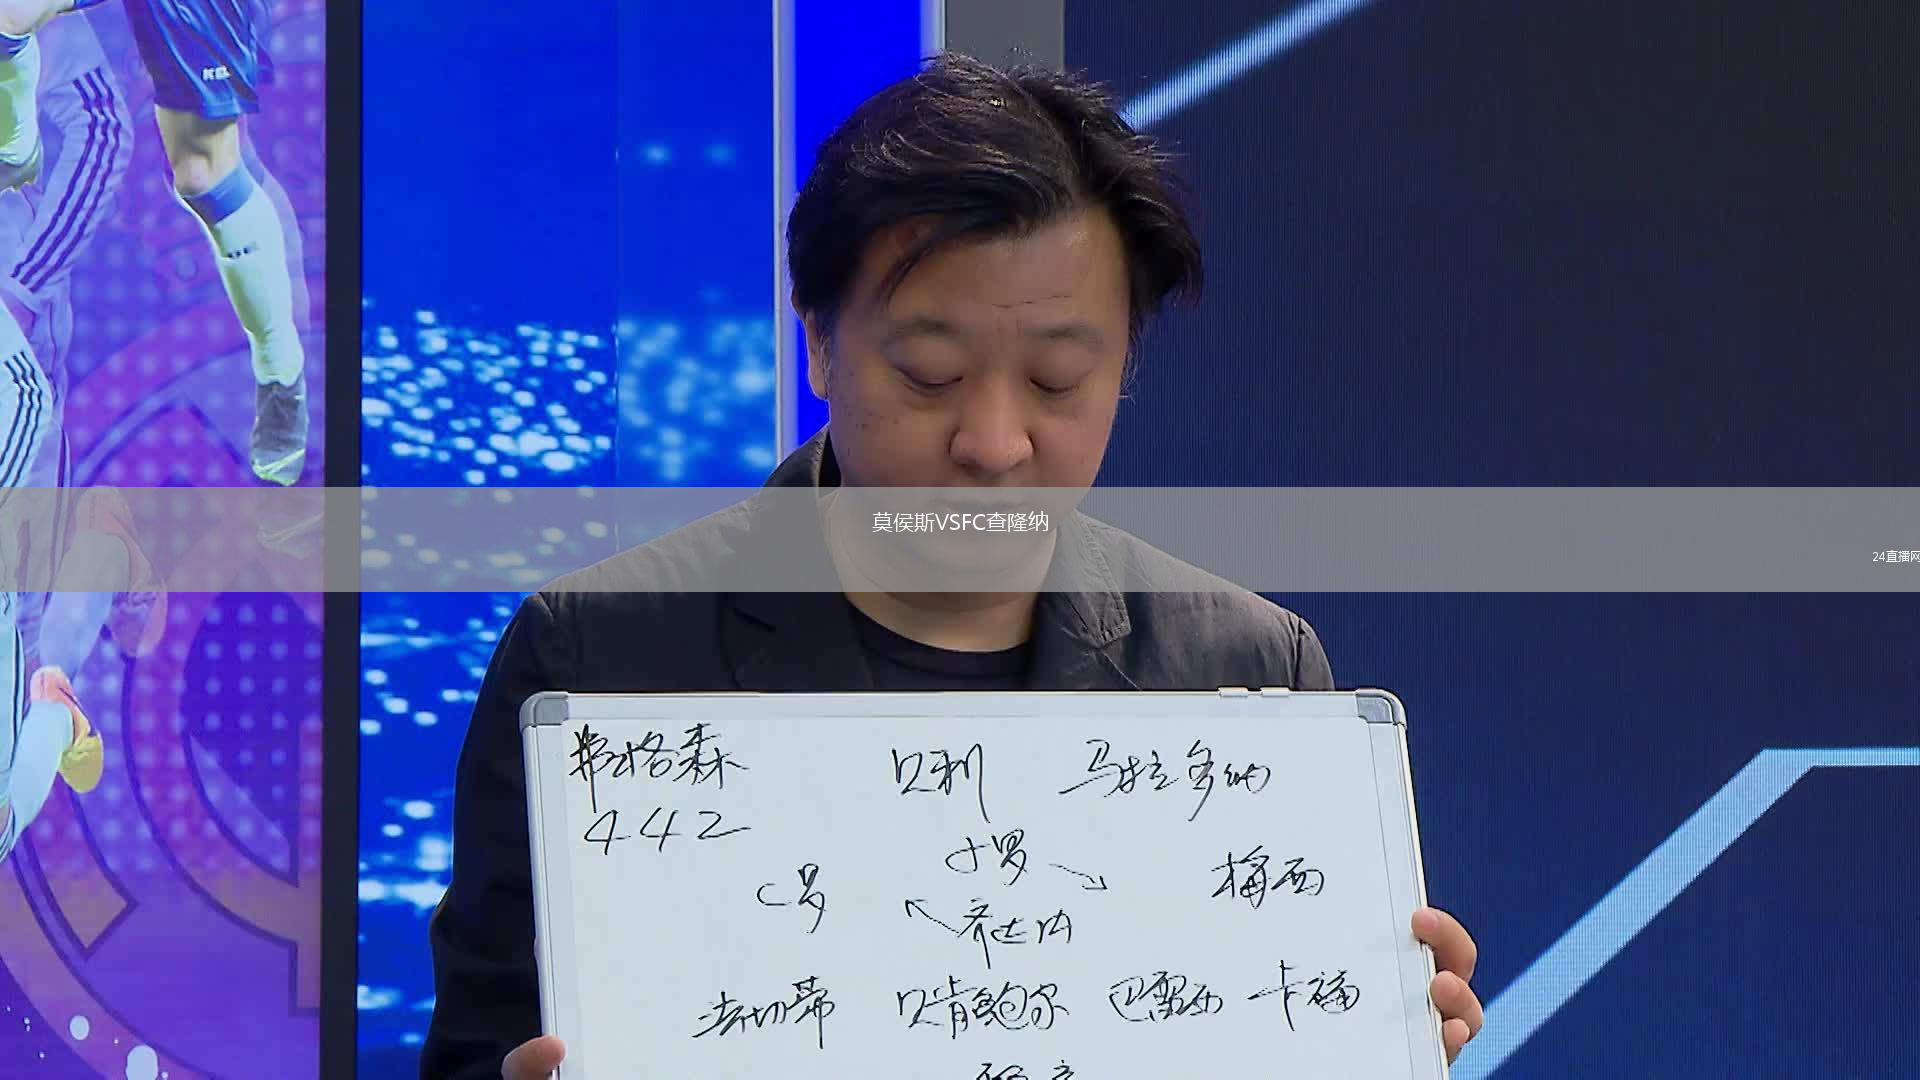 莫侯斯VSFC查隆纳
24直播网
弗格森 贝利 马拉多纳
442
小罗
C罗 梅西
齐达内
法切蒂 贝肯鲍尔 巴雷西 卡福